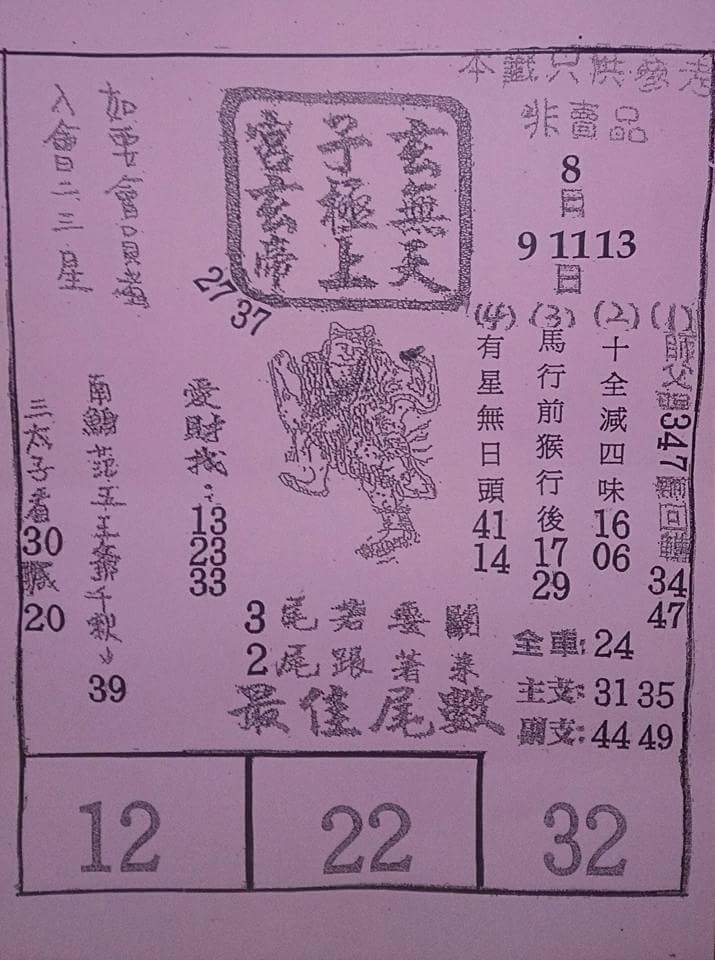 本籤只供參考
非賣品
8
日
9 11 13
日
玄無天
子極上
宮玄帝
27
37
如要會員
入會日二三星
(1)
師父
347
回
34
47
(2)
十全減四味
16
06
(3)
馬行前猴行後
17
29
(4)
有星無日頭
41
14
愛財找:
13
23
33
南鯤
五王爺千秋
39
三太子看
30
20
全車: 24
主支: 31 35
副支: 44 49
關要若尾 3
來著跟尾 2
最佳尾數
12
22
32